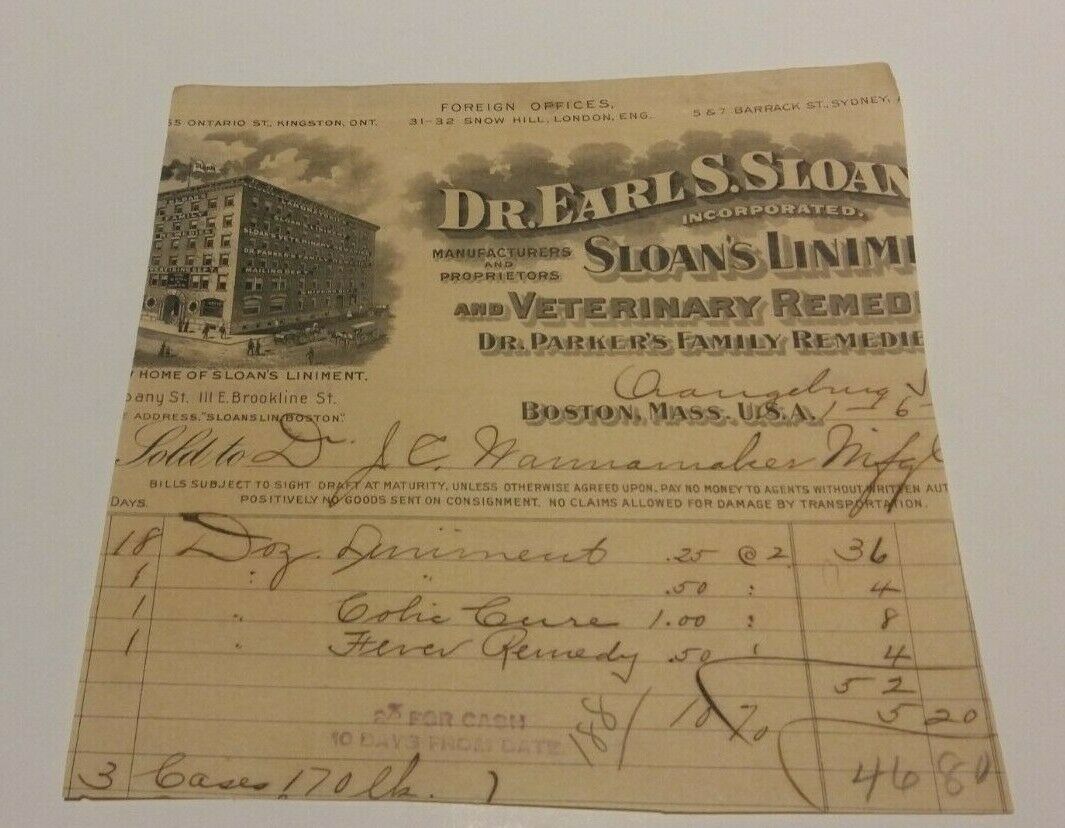 FOREIGN OFFICES,
55 ONTARIO ST., KINGSTON, ONT. 31-32 SNOW HILL, LONDON, ENG. 5 & 7 BARRACK ST., SYDNEY, A
DR. EARL S. SLOAN
INCORPORATED.
MANUFACTURERS AND PROPRIETORS SLOAN'S LINIME
AND VETERINARY REMEDI
DR. PARKER'S FAMILY REMEDIE
HOME OF SLOAN'S LINIMENT.
bany St. 111 E. Brookline St.
E ADDRESS, "SLOANSLIN, BOSTON."
Orangeburg
BOSTON, MASS. U.S.A. 1-6-
Sold to Dr. J. C. Wannamaker Mfg C
BILLS SUBJECT TO SIGHT DRAFT AT MATURITY, UNLESS OTHERWISE AGREED UPON. PAY NO MONEY TO AGENTS WITHOUT WRITTEN AUT
DAYS. POSITIVELY NO GOODS SENT ON CONSIGNMENT. NO CLAIMS ALLOWED FOR DAMAGE BY TRANSPORTATION.
18 Doz. Liniment .25 @ 2 36
1 " " .50 " 4
1 " Colic Cure 1.00 " 8
1 " Fever Remedy .50 " 4
52
188/ 10% 5 20
FOR CASH
10 DAYS FROM DATE
46 80
3 Cases 170 lb.